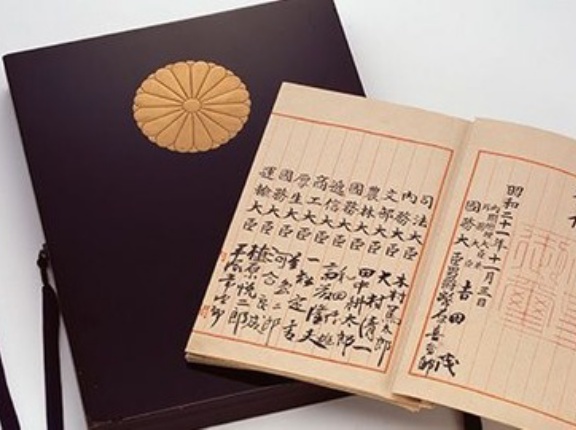 昭和二十一年十一月三日
内閣總理大臣兼
外務大臣 吉田茂
國務大臣 男爵 幣原喜重郎
司法大臣 木村篤太郎
内務大臣 大村清一
文部大臣 田中耕太郎
農林大臣
國務大臣 斎藤隆夫
逓信大臣 一松定吉
商工大臣
厚生大臣 河合良成
國務大臣 植原悦二郎
運輸大臣 平塚常次郎